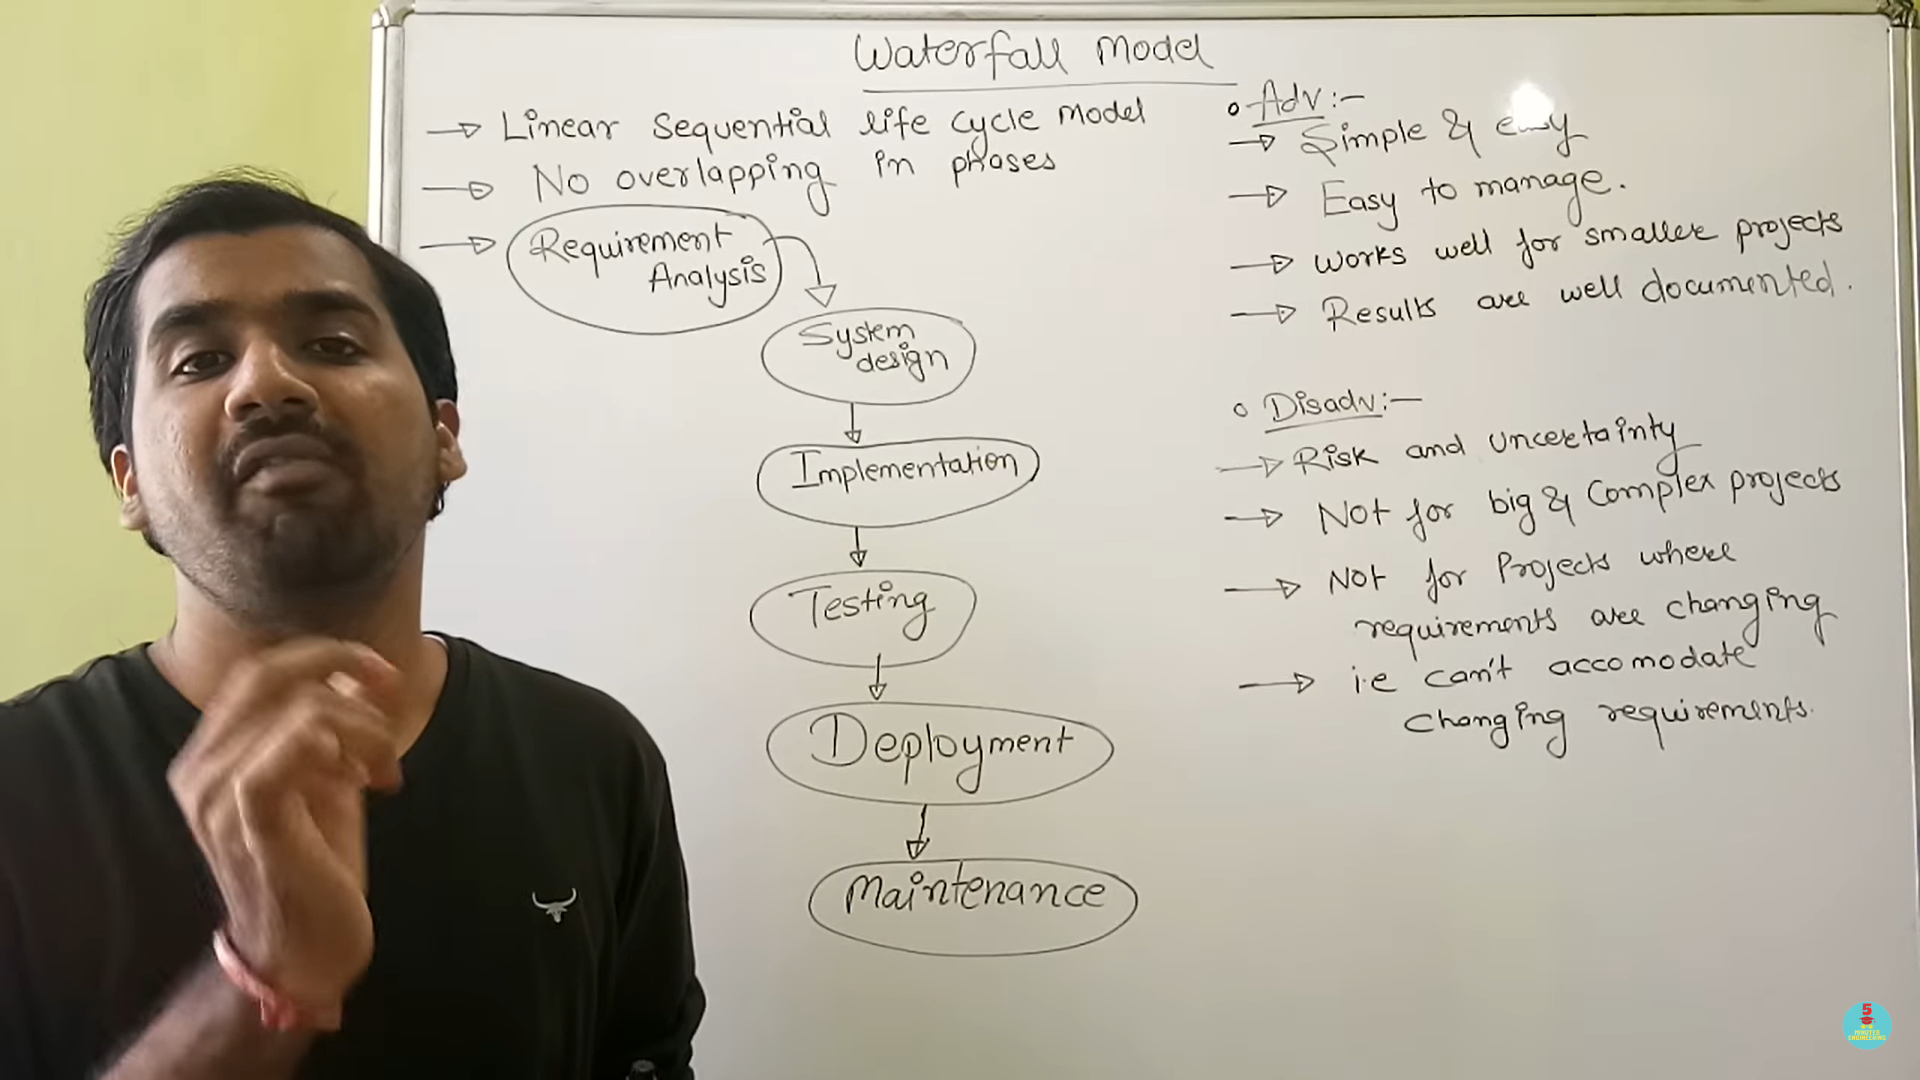 Waterfall Model
→ Linear Sequential life cycle Model
→ No overlapping in phases
→ Requirement
Analysis
System
design
Implementation
Testing
Deployment
Maintenance
o Adv:-
→ Simple & easy
→ Easy to manage.
→ works well for smaller projects
→ Results are well documented.
o Disadv:-
→ Risk and uncertainty
→ Not for big & Complex projects
→ Not for Projects where
requirements are changing
→ i.e can't accomodate
changing requirements.
5
MINUTES
ENGINEERING